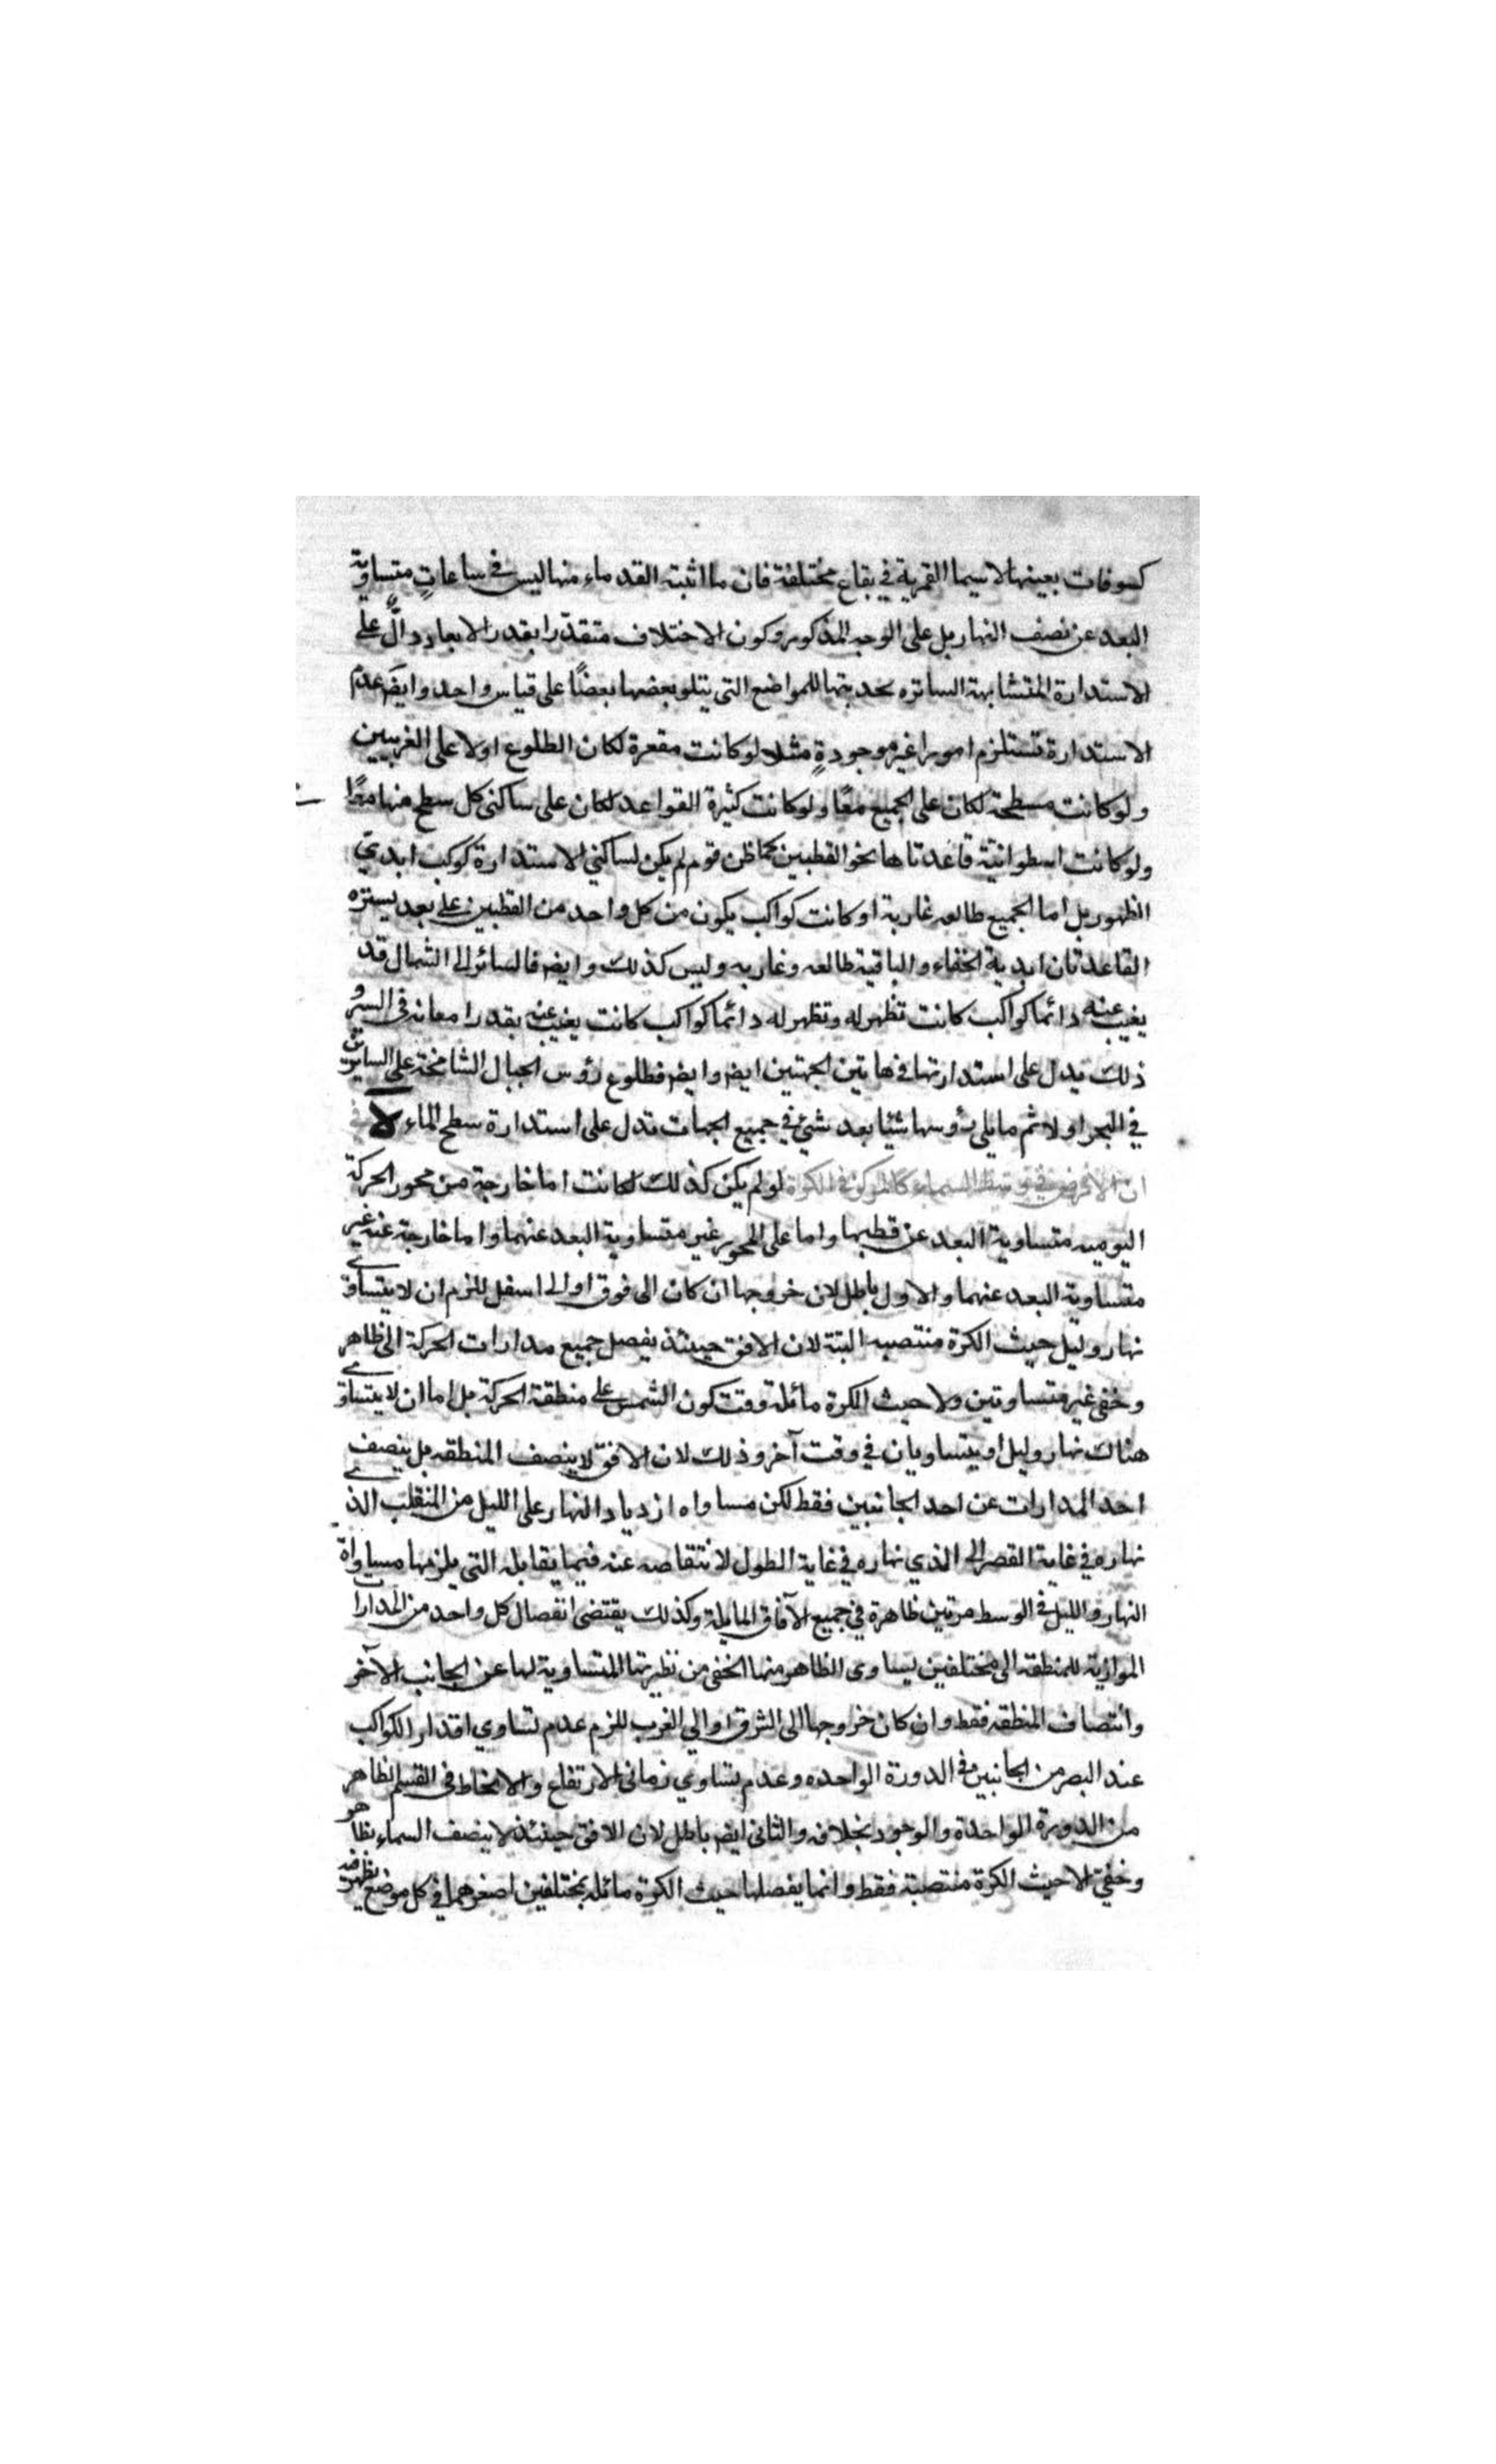 كسوفات بعينها لاسيما القمرية في بقاع مختلفة فان ما اثبته القدماء منها ليس في ساعاتٍ متساوية
البعد عن نصف النهار بل على الوجه المذكور وكون الاختلاف متقدّرا بقدر الابعاد دالٌّ على
الاستدارة المتشابهة الساتره بحدبتها للمواضع التى يتلو بعضها بعضًا على قياس واحد وايضم عدم
الاستدارة تستلزم امورا غير موجودةٍ مثلا لو كانت مقعرة لكان الطلوع اولا على الغربيين
ولو كانت مسطحة لكان على الجميع معًا ولو كانت كثيرة القواعد لكان على ساكنى كل سطح منها معًا
ولو كانت اسطوانيّة قاعدتاها نحو القطبين كما ظن قوم لم يكن لساكني الاستدارة كوكب ابدي
الظهور بل اما الجميع طالعه غاربة او كانت كواكب يكون من كل واحد من القطبين على بعد يستره
القاعدتان ابدية الخفاء والباقية طالعه وغاربه وليس كذلك وايضم فالسائر الى الشمال قد
يغيب عنه دائما كواكب كانت تظهر له وتظهر له دائما كواكب كانت يغيب عنه بقدر امعانه في السير و
ذلك يدل على استدارتها في هاتين الجهتين ايضم وايضم فطلوع رؤس الجبال الشامخة على السايرين
في البحر اولا ثم مايلي رؤسها شيئا بعد شئ في جميع الجهات تدل على استدارة سطح الماء لا في
ان الارض في توسط السماء كالمركز في الكرة لو لم يكن كذلك لكانت اما خارجة من محور الحركة
اليوميه متساوية البعد عن قطبيها واما على المحور غير متساوية البعد عنهما واما خارجة عنه غير
متساوية البعد عنهما والاول باطل لان خروجها ان كان الى فوق او الى اسفل للزم ان لا يتساوى
نهار وليل حيث الكرة منتصبه البتة لان الافق حينئذ يفصل جميع مدارات الحركة الى ظاهر
وخفى غير متساوتين ولا حيث الكرة مائلة وقت كون الشمس على منطقة الحركة بل اما ان لا يتساوى
هناك نهار وليل او يتساويان في وقت آخر وذلك لان الافق لا ينصف المنطقه بل ينصف
احد المدارات عن احد الجانبين فقط لكن مساواه ازدياد النهار على الليل من المنقلب الذي
نهاره في غاية القصر الى الذي نهاره في غاية الطول لانتقاصه عنه فيما يقابله التى يلزمها مساواة
النهار والليل في الوسط مرتين ظاهرة في جميع الآفاق المايلة وكذلك يقتضى انفصال كل واحد من المدارات
الموازية للمنطقه الى مختلفين يساوى الظاهر منها الخفى من نظيرتها المتساوية لها عن الجانب الآخر
وانتصاف المنطقه فقط وان كان خروجها الى الشرق او الى الغرب للزم عدم تساوي اقدار الكواكب
عند البصر من الجانبين في الدورة الواحده وعدم تساوي زمانى الارتفاع والانحطاط فى القسم الظاهر
من الدورة الواحدة والوجود بخلافه والثانى ايضم باطل لان الافق حينئذ لا ينصف السماء بظاهر
وخفيّ الا حيث الكرة منتصبة فقط وانما يفصلها حيث الكرة مائلة بمختلفين اصغرهما في كل موضع